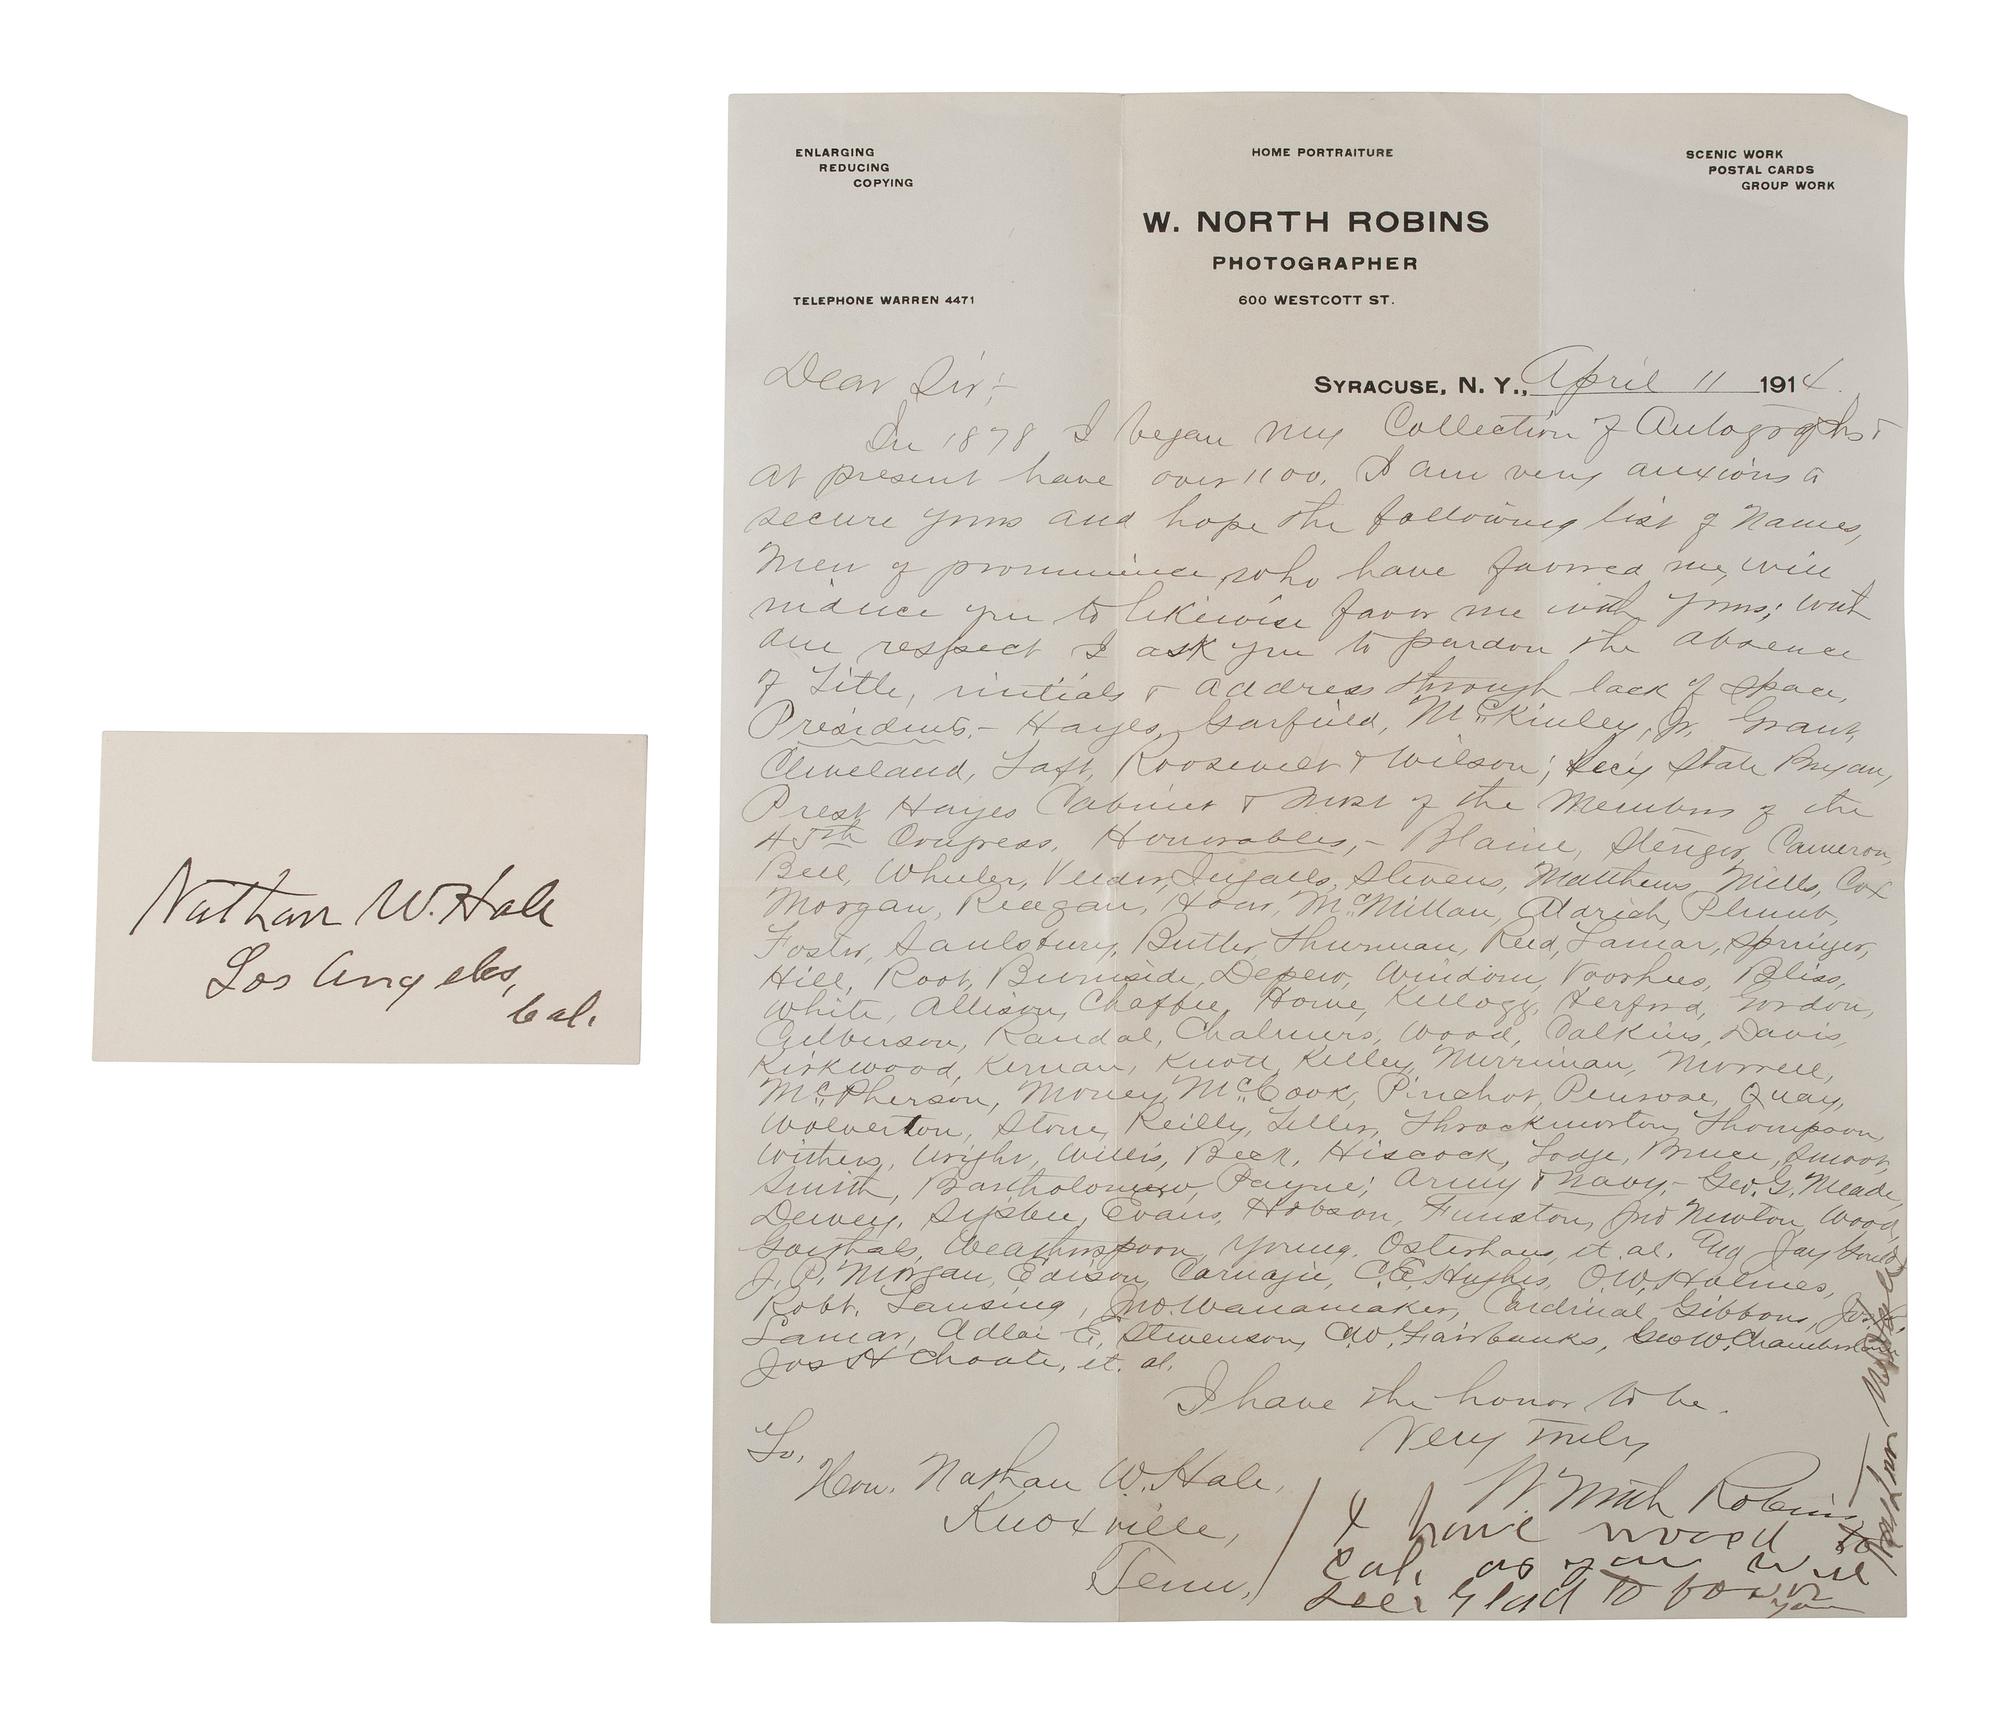 Nathan W. Hale
Los Angeles,
Cal.
ENLARGING
REDUCING
COPYING
HOME PORTRAITURE
SCENIC WORK
POSTAL CARDS
GROUP WORK
W. NORTH ROBINS
PHOTOGRAPHER
TELEPHONE WARREN 4471
600 WESTCOTT ST.
Dear Sir;-
SYRACUSE, N. Y., April 11 1914.
In 1878 I began my Collection of Autographs &
at present have over 1100. I am very anxious to
secure yours and hope the following list of Names,
Men of prominence, who have favored me, will
induce you to likewise favor me with yours; with
due respect I ask you to pardon the absence
of Title, initials & address through lack of space,
Presidents,- Hayes, Garfield, McKinley, Jr. Grant,
Cleveland, Taft, Roosevelt & Wilson; Secy State Bryan,
Prest Hayes Cabinet & most of the Members of the
45th Congress. Honorables,- Blaine, Stenger, Cameron,
Bell, Wheeler, Veeder, Ingalls, Stevens, Matthews, Mills, Cox
Morgan, Reagan, Hoar, McMillan, Aldrich, Plumb,
Foster, Saulsbury, Butler, Thurman, Reed, Lamar, Springer,
Hill, Root, Burnside, Depew, Windom, Voorhees, Bliss,
White, Allison, Chaffee, Howe, Kellogg, Herford, Gordon,
Culberson, Randal, Chalmers, Wood, Calkins, Davis,
Kirkwood, Kernan, Knott, Kelley, Merriman, Morrell,
McPherson, Money, McCook, Pinchot, Penrose, Quay,
Wolverton, Stone, Reilly, Teller, Throckmorton, Thompson,
Withers, Wright, Willis, Beck, Hiscock, Lodge, Bruce, Smoot,
Smith, Bartholomew, Payne; Army & Navy,- Geo. G. Meade,
Dewey, Sigsbee, Evans, Hobson, Funston, Jno Newton, Wood,
Goethals, Weatherspoon, Young, Osterhaus, et. al. Jay Gould,
J. P. Morgan, Edison, Carnagie, C. E. Hughes, O. W. Holmes,
Robt. Lansing, Jno. Wanamaker, Cardinal Gibbons, Jos. R.
Lamar, Adlai E. Stevenson, C. W. Fairbanks, Geo W. Chamberlain
Jos H Choate, et. al.
I have the honor to be.
Very Truly
W. North Robins
To,
Hon. Nathan W. Hale,
Knoxville,
Tenn.
I have moved to
Cal. as you will
see. Glad to favor
you
Nathan W. Hale